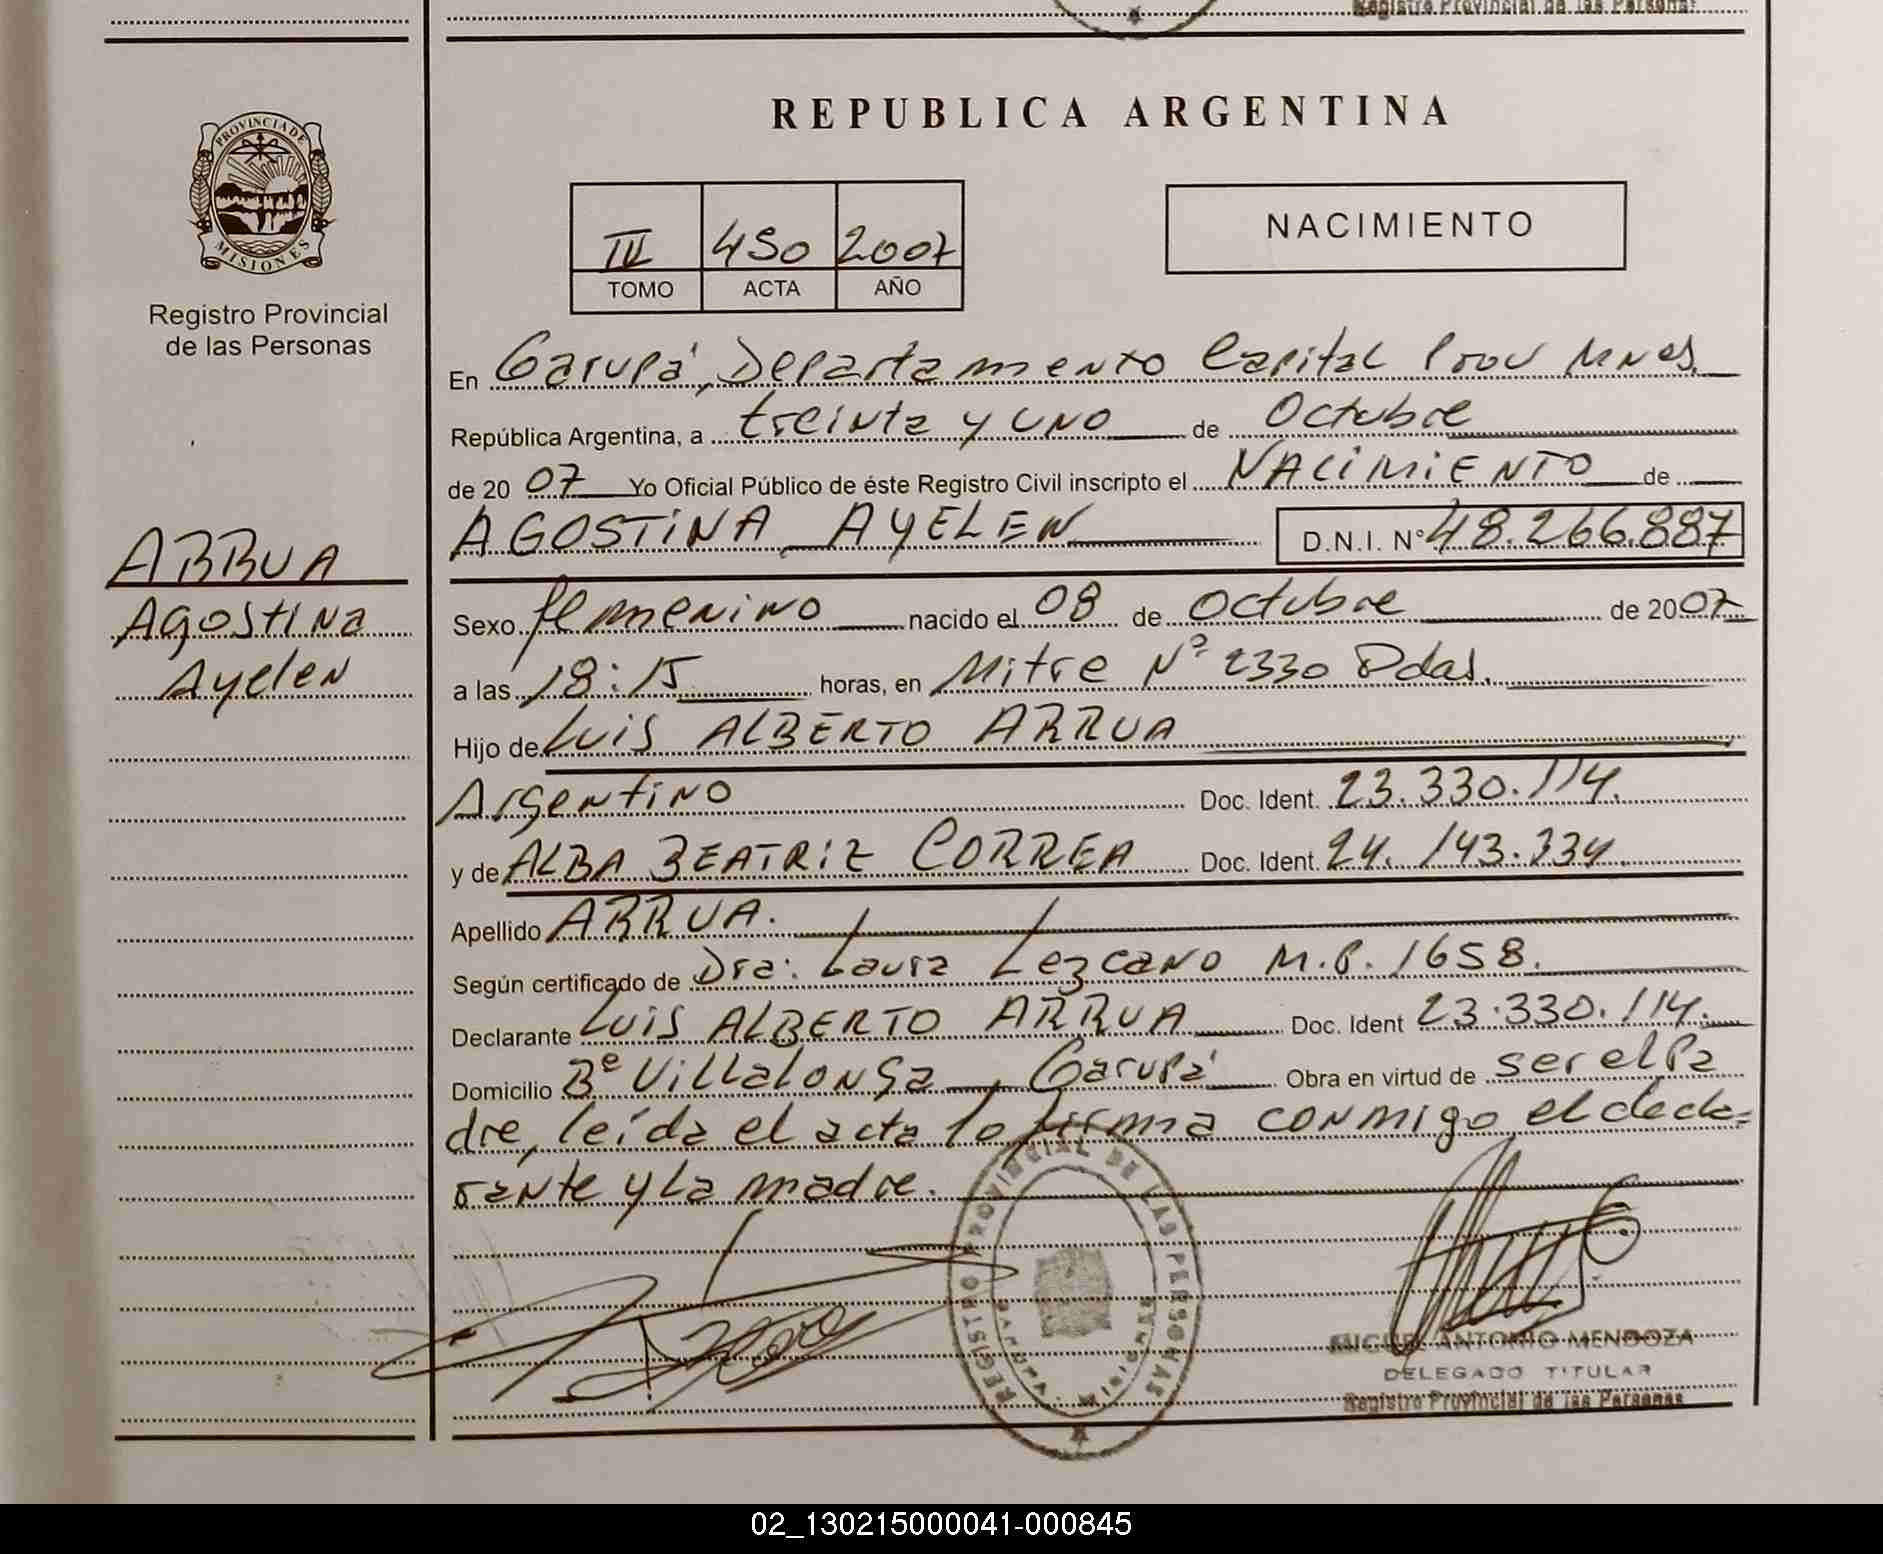 Registro Provincial de las Personas
REPUBLICA ARGENTINA
PROVINCIA DE
MISIONES
Registro Provincial
de las Personas
450 2007
TOMO ACTA AÑO
NACIMIENTO
En Garupá, Departamento Capital Prov Mnes.
República Argentina, a treinta y uno de Octubre
de 2007 Yo Oficial Público de éste Registro Civil inscripto el NACIMIENTO de
AGOSTINA AYELEN D.N.I. Nº 48.266.887
ARRUA
Agostina
Ayelen
Sexo femenino nacido el 08 de Octubre de 2007
a las 18:15 horas, en Mitre Nº 2330 Pdas.
Hijo de LUIS ALBERTO ARRUA
Argentino Doc. Ident. 23.330.114.
y de ALBA BEATRIZ CORREA Doc. Ident. 24.143.334.
Apellido ARRUA.
Según certificado de Dra: Laura Lezcano M.P. 1658.
Declarante LUIS ALBERTO ARRUA Doc. Ident 23.330.114.
Domicilio Bº Villalonga, Garupá Obra en virtud de ser el Pa
dre, leída el acta lo firma conmigo el decla=
rante y la madre.
REGISTRO PROVINCIAL DE LAS PERSONAS
MIGUEL ANTONIO MENDOZA
DELEGADO TITULAR
Registro Provincial de las Personas
02_130215000041-000845